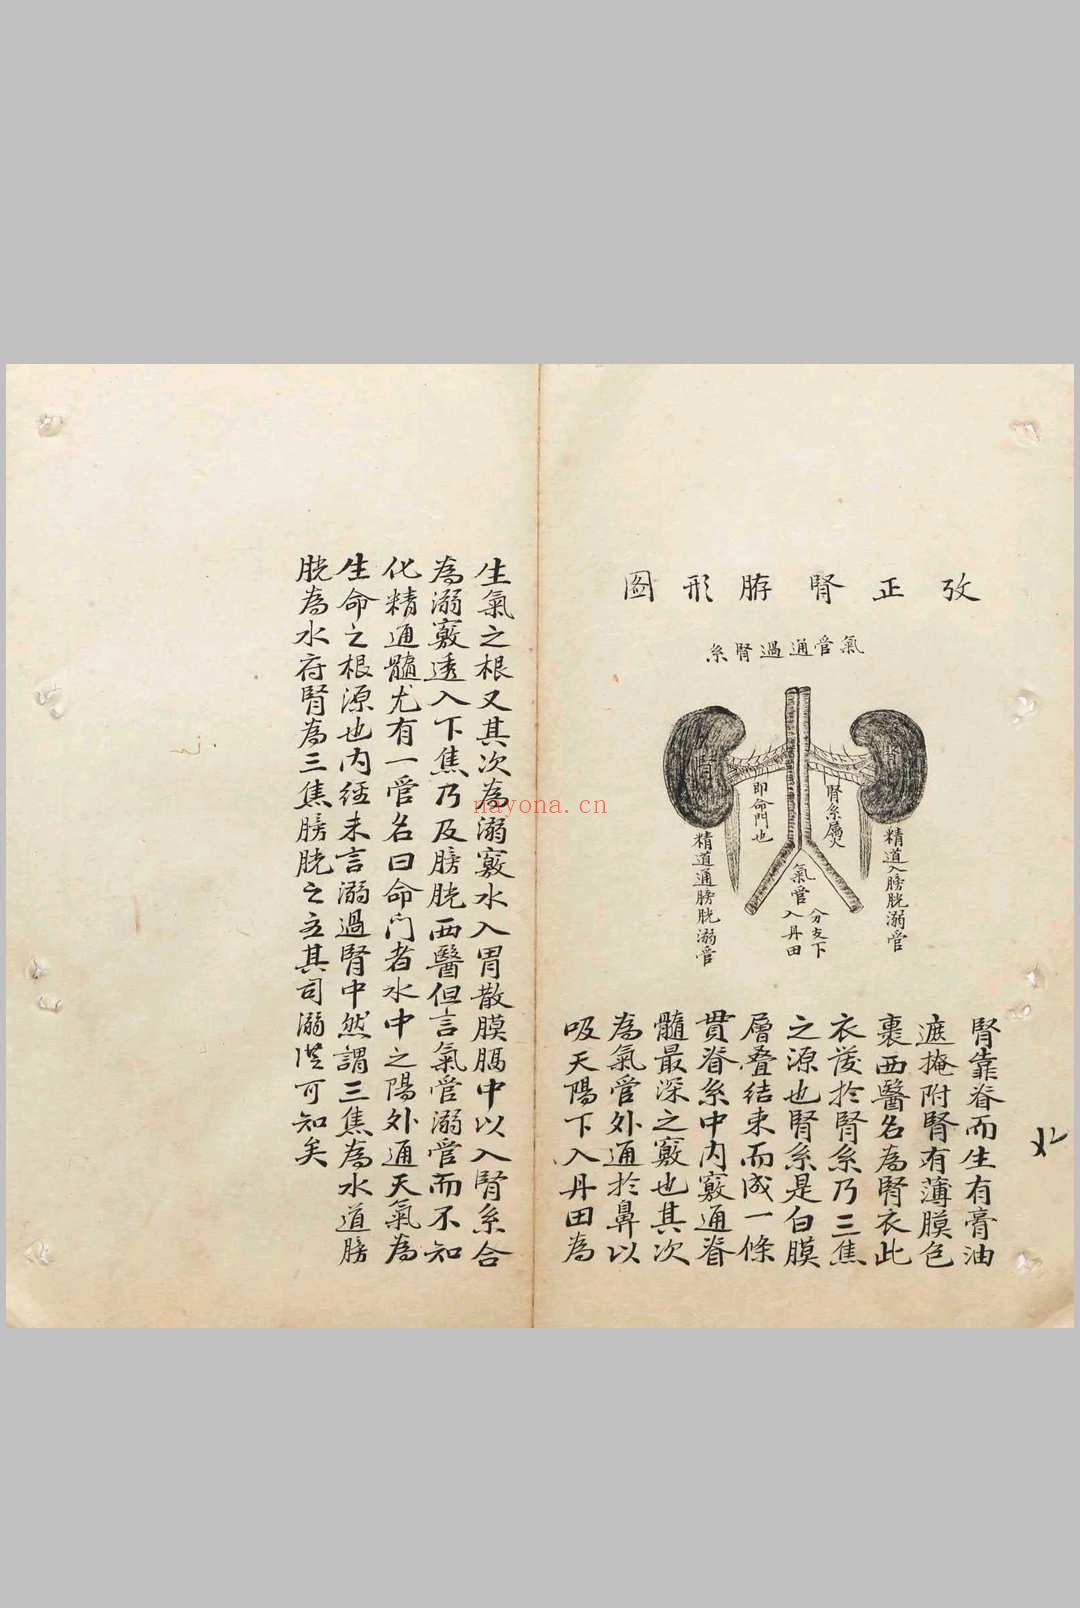 攷正腎腑形圖
氣管通過腎系
腎
腎
腎系屬火
即命門也
氣管
分支下
入丹田
精道入膀胱溺管
精道通膀胱溺管
腎靠脊而生有膏油
遮掩附腎有薄膜包
裹西醫名為腎衣此
衣後於腎系乃三焦
之源也腎系是白膜
層叠結束而成一條
貫脊系中內竅通脊
髓最深之竅也其次
為氣管外通於鼻以
吸天陽下入丹田為
生氣之根又其次為溺竅水入胃散膜膈中以入腎系合
為溺竅透入下焦乃及膀胱西醫但言氣管溺管而不知
化精通髓尤有一管名曰命门者水中之陽外通天氣為
生命之根源也內經未言溺過腎中然謂三焦為水道膀
胱為水府腎為三焦膀胱之主其司溺從可知矣
nayona.cn